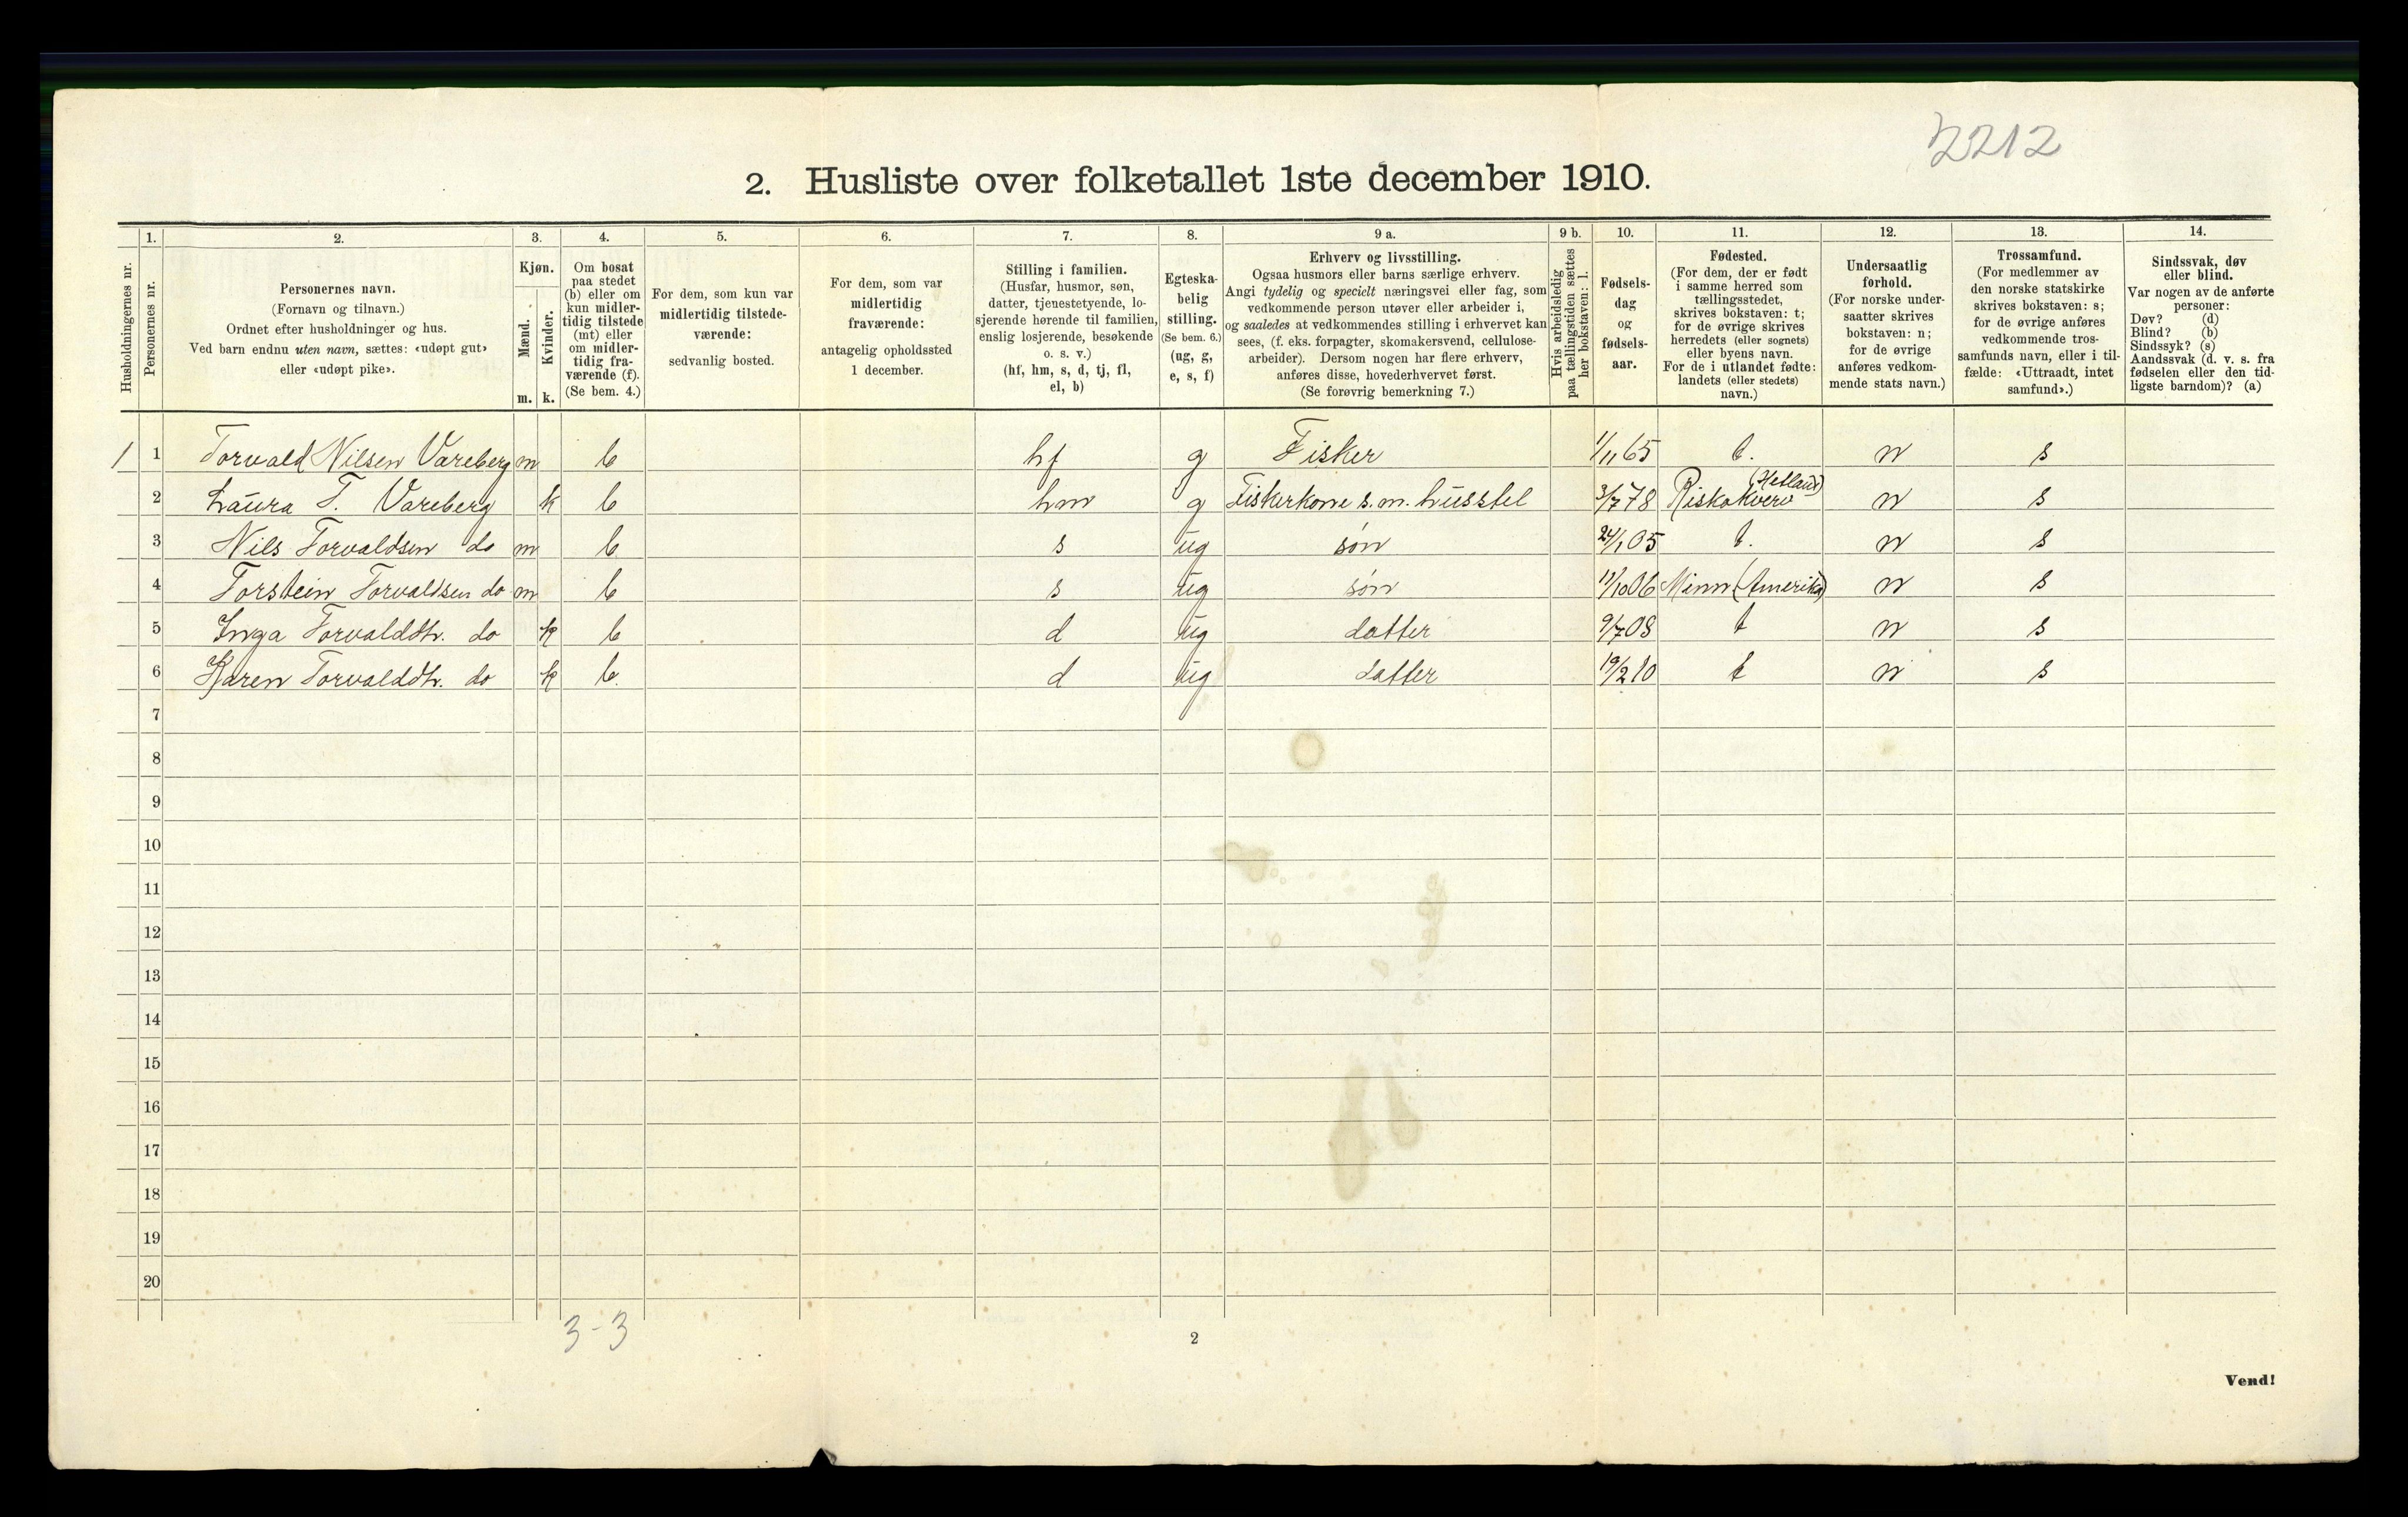 2212
2. Husliste over folketallet 1ste december 1910.
1. 2. 3. 4. 5. 6. 7. 8. 9 a. 9 b. 10. 11. 12. 13. 14.
Husholdningernes nr.
Personernes nr.
Personernes navn.
(Fornavn og tilnavn.)
Ordnet efter husholdninger og hus.
Ved barn endnu uten navn, sættes: «udøpt gut»
eller «udøpt pike».
Kjøn.
Mænd.
Kvinder.
m. k.
Om bosat
paa stedet
(b) eller om
kun midler-
tidig tilstede
(mt) eller
om midler-
tidig fra-
værende (f).
(Se bem. 4.)
For dem, som kun var
midlertidig tilstede-
værende:
sedvanlig bosted.
For dem, som var
midlertidig
fraværende:
antagelig opholdssted
1 december.
Stilling i familien.
(Husfar, husmor, søn,
datter, tjenestetyende, lo-
sjerende hørende til familien,
enslig losjerende, besøkende
o. s. v.)
(hf, hm, s, d, tj, fl,
el, b)
Egteska-
belig
stilling.
(Se bem. 6.)
(ug, g,
e, s, f)
Erhverv og livsstilling.
Ogsaa husmors eller barns særlige erhverv.
Angi tydelig og specielt næringsvei eller fag, som
vedkommende person utøver eller arbeider i,
og saaledes at vedkommendes stilling i erhvervet kan
sees, (f. eks. forpagter, skomakersvend, cellulose-
arbeider). Dersom nogen har flere erhverv,
anføres disse, hovederhvervet først.
(Se forøvrig bemerkning 7.)
Hvis arbeidsledig
paa tællingstiden sættes
her bokstaven: l.
Fødsels-
dag
og
fødsels-
aar.
Fødested.
(For dem, der er født
i samme herred som
tællingsstedet,
skrives bokstaven: t;
for de øvrige skrives
herredets (eller sognets)
eller byens navn.
For de i utlandet fødte:
landets (eller stedets)
navn.)
Undersaatlig
forhold.
(For norske under-
saatter skrives
bokstaven: n;
for de øvrige
anføres vedkom-
mende stats navn.)
Trossamfund.
(For medlemmer av
den norske statskirke
skrives bokstaven: s;
for de øvrige anføres
vedkommende tros-
samfunds navn, eller i til-
fælde: «Uttraadt, intet
samfund».)
Sindssvak, døv
eller blind.
Var nogen av de anførte
personer:
Døv? (d)
Blind? (b)
Sindssyk? (s)
Aandssvak (d. v. s. fra
fødselen eller den tid-
ligste barndom)? (a)
1 1 Torvald Nilsen Vareberg m b hf g Fisker 1/11 65 t. n s
2 Laura T. Vareberg k b hm g Fiskerkone s.m. husstel 3/7 78 Riskekverv (Hetland) n s
3 Nils Torvaldsen do m b s ug søn 24/1 05 t. n s
4 Torstein Torvaldsen do m b s ug søn 11/10 06 Minn (Amerika) n s
5 Inga Torvalddtr. do k b d ug datter 9/7 08 t n s
6 Karen Torvalddtr. do k b. d ug datter 19/2 10 t n s
7
8
9
10
11
12
13
14
15
16
17
18
19
20
3-3
2
Vend!